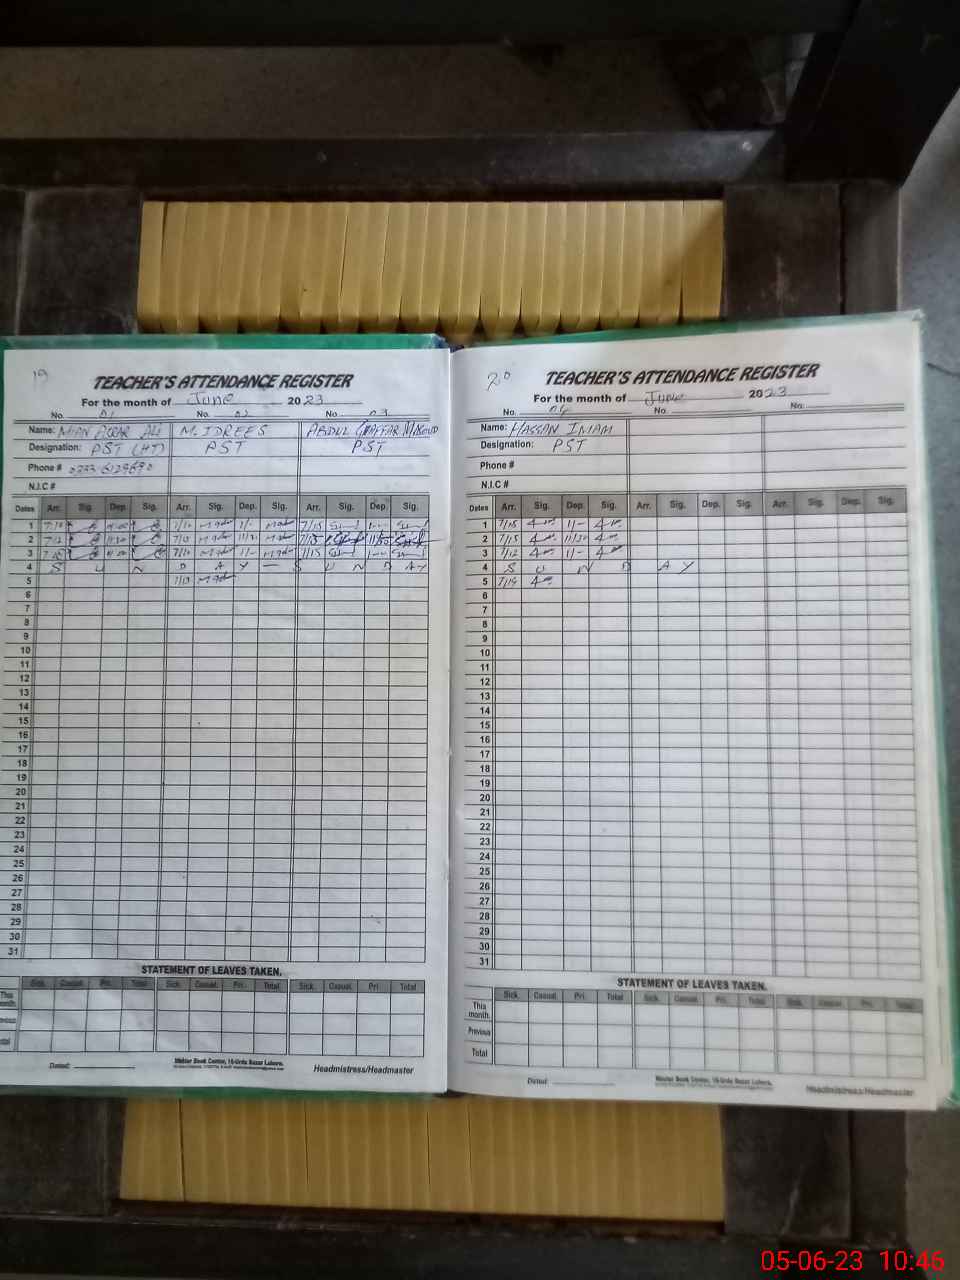 19
TEACHER'S ATTENDANCE REGISTER
For the month of June 2023
No. 01 No. 02 No. 03
Name: MIAN ALI M. IDREES ABDUL GHAFFAR
Designation: PST (HT) PST PST
Phone #
N.I.C #
Dates Arr. Sig. Dep. Sig. Arr. Sig. Dep. Sig. Arr. Sig. Dep. Sig.
1 7/10 11/- 7/15
2 7/10 11/30 7/15 11/30
3 7/10 11/- 7/15
4 S U N D A Y — S U N D A Y
5 7/10
6
7
8
9
10
11
12
13
14
15
16
17
18
19
20
21
22
23
24
25
26
27
28
29
30
31
STATEMENT OF LEAVES TAKEN.
Sick. Casual. Pri. Total Sick. Casual. Pri. Total Sick. Casual. Pri Total
This month.
Previous
Total
Dated:
Mehler Book Center, 16-Urdu Bazar Lahore.
Headmistress/Headmaster
20
TEACHER'S ATTENDANCE REGISTER
For the month of June 2023
No. 04 No. No.
Name: HASSAN IMAM
Designation: PST
Phone #
N.I.C #
Dates Arr. Sig. Dep. Sig. Arr. Sig. Dep. Sig. Arr. Sig. Dep. Sig.
1 7/15 11/-
2 7/15 11/30
3 7/12 11/-
4 S U N D A Y
5 7/14
6
7
8
9
10
11
12
13
14
15
16
17
18
19
20
21
22
23
24
25
26
27
28
29
30
31
STATEMENT OF LEAVES TAKEN.
Sick. Casual. Pri. Total Sick. Casual. Pri. Total Sick. Casual. Pri. Total
This month.
Previous
Total
Dated:
Mehler Book Center, 16-Urdu Bazar Lahore.
Headmistress/Headmaster
05-06-23 10:46